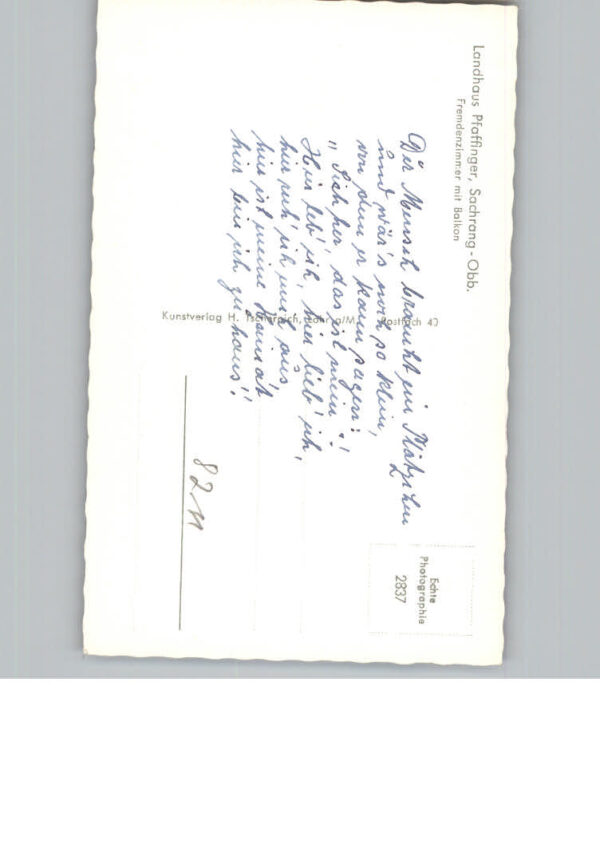 Landhaus Pfaffinger, Sachrang-Obb.
Fremdenzimmer mit Balkon
Der Mensch braucht ein Plätzchen
und wär's noch so klein,
von dem er kann sagen:
"Sieh her, das ist mein!
Hier leb' ich, hier lieb' ich,
hier ruh' ich mich aus
hier ist meine Heimat
hier bin ich zu haus"!
Kunstverlag H. Tscherpich, Lohr a/M. Postfach 40
Echte
Photographie
2837
82 M